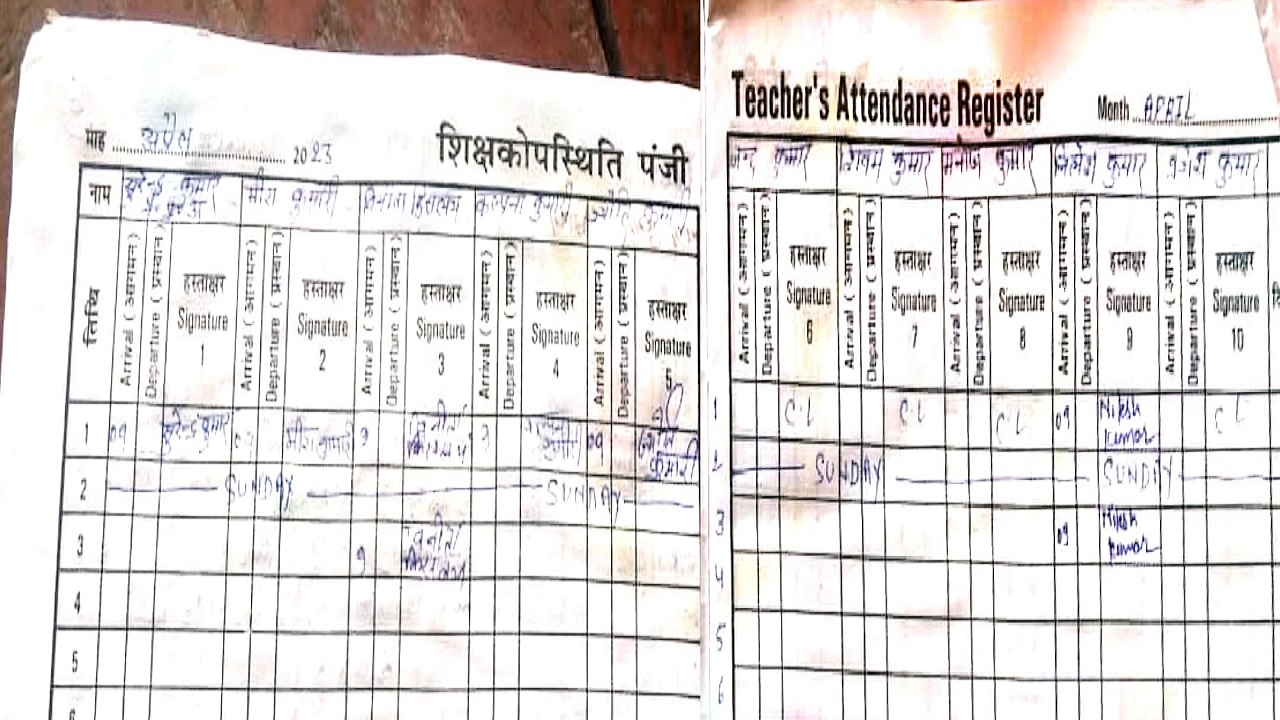 माह अप्रैल 2023
शिक्षकोपस्थिति पंजी
नाम सुरेन्द्र कुमार मीरा कुमारी कल्पना कुमारी
तिथि
Arrival ( आगमन ) Departure ( प्रस्थान ) हस्ताक्षर Signature 1
Arrival ( आगमन ) Departure ( प्रस्थान ) हस्ताक्षर Signature 2
Arrival ( आगमन ) Departure ( प्रस्थान ) हस्ताक्षर Signature 3
Arrival ( आगमन ) Departure ( प्रस्थान ) हस्ताक्षर Signature 4
Arrival ( आगमन ) Departure ( प्रस्थान ) हस्ताक्षर Signature
1 09 सुरेन्द्र कुमार मीरा कुमारी 9 09 कुमारी
2 SUNDAY SUNDAY
3 9
4
5
6
Teacher's Attendance Register
Month APRIL
कुमार कुमार मनोज कुमार कुमार कुमार
Arrival ( आगमन ) Departure ( प्रस्थान ) हस्ताक्षर Signature 6
Arrival ( आगमन ) Departure ( प्रस्थान ) हस्ताक्षर Signature 7
Arrival ( आगमन ) Departure ( प्रस्थान ) हस्ताक्षर Signature 8
Arrival ( आगमन ) Departure ( प्रस्थान ) हस्ताक्षर Signature 9
Arrival ( आगमन ) Departure ( प्रस्थान ) हस्ताक्षर Signature 10
1 CL CL CL 09 Nilesh Kumar CL
2 SUNDAY SUNDAY
3 09 Nilesh Kumar
4
5
6